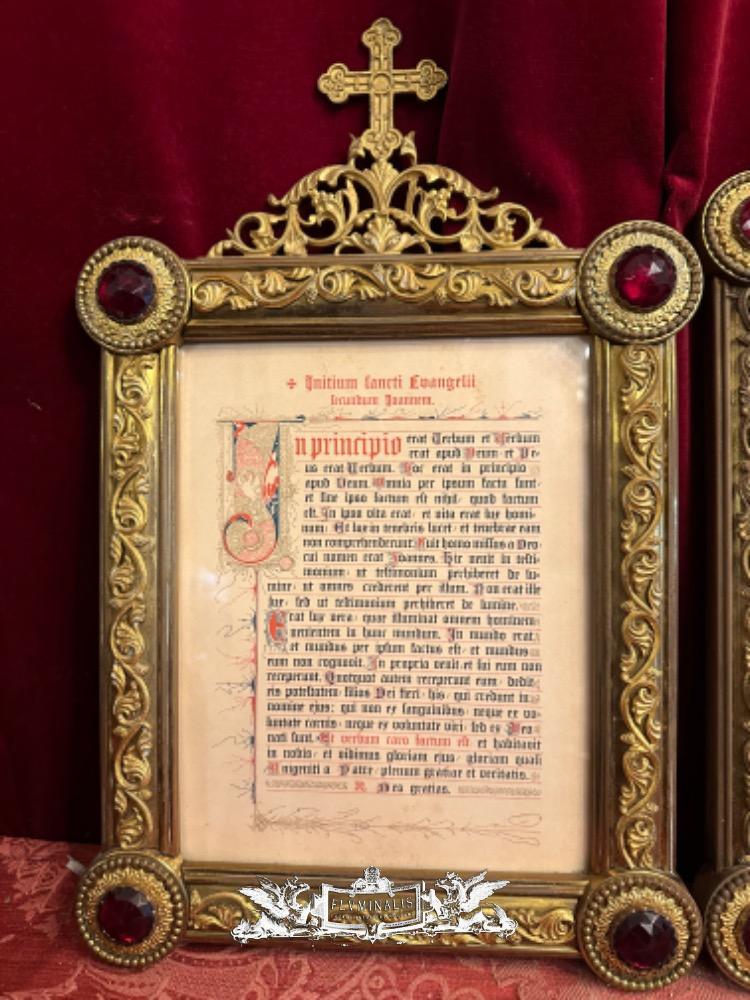 ✠ Initium sancti Evangelii
secundum Joannem.
In principio erat Verbum et Verbum
erat apud Deum, et De-
us erat Verbum. Hoc erat in principio
apud Deum. Omnia per ipsum facta sunt,
et sine ipso factum est nihil, quod factum
est. In ipso vita erat, et vita erat lux homi-
num: Et lux in tenebris lucet, et tenebrae eam
non comprehenderunt. Fuit homo missus a Deo
cui nomen erat Joannes. Hic venit in testi-
monium, ut testimonium perhiberet de lu-
mine, ut omnes crederent per illum. Non erat ille
lux, sed ut testimonium perhiberet de lumine.
Erat lux vera, quae illuminat omnem hominem
venientem in hunc mundum. In mundo erat,
et mundus per ipsum factus est, et mundus
eum non cognovit. In propria venit, et sui eum non
receperunt. Quotquot autem receperunt eum, dedit
eis potestatem filios Dei fieri, his, qui credunt in
nomine ejus: qui non ex sanguinibus, neque ex vo-
luntate carnis, neque ex voluntate viri, sed ex Deo
nati sunt. Et verbum caro factum est, et habitavit
in nobis, et vidimus gloriam ejus, gloriam quasi
Unigeniti a Patre, plenum gratiae et veritatis.
R. Deo gratias.
FLVMINALIS